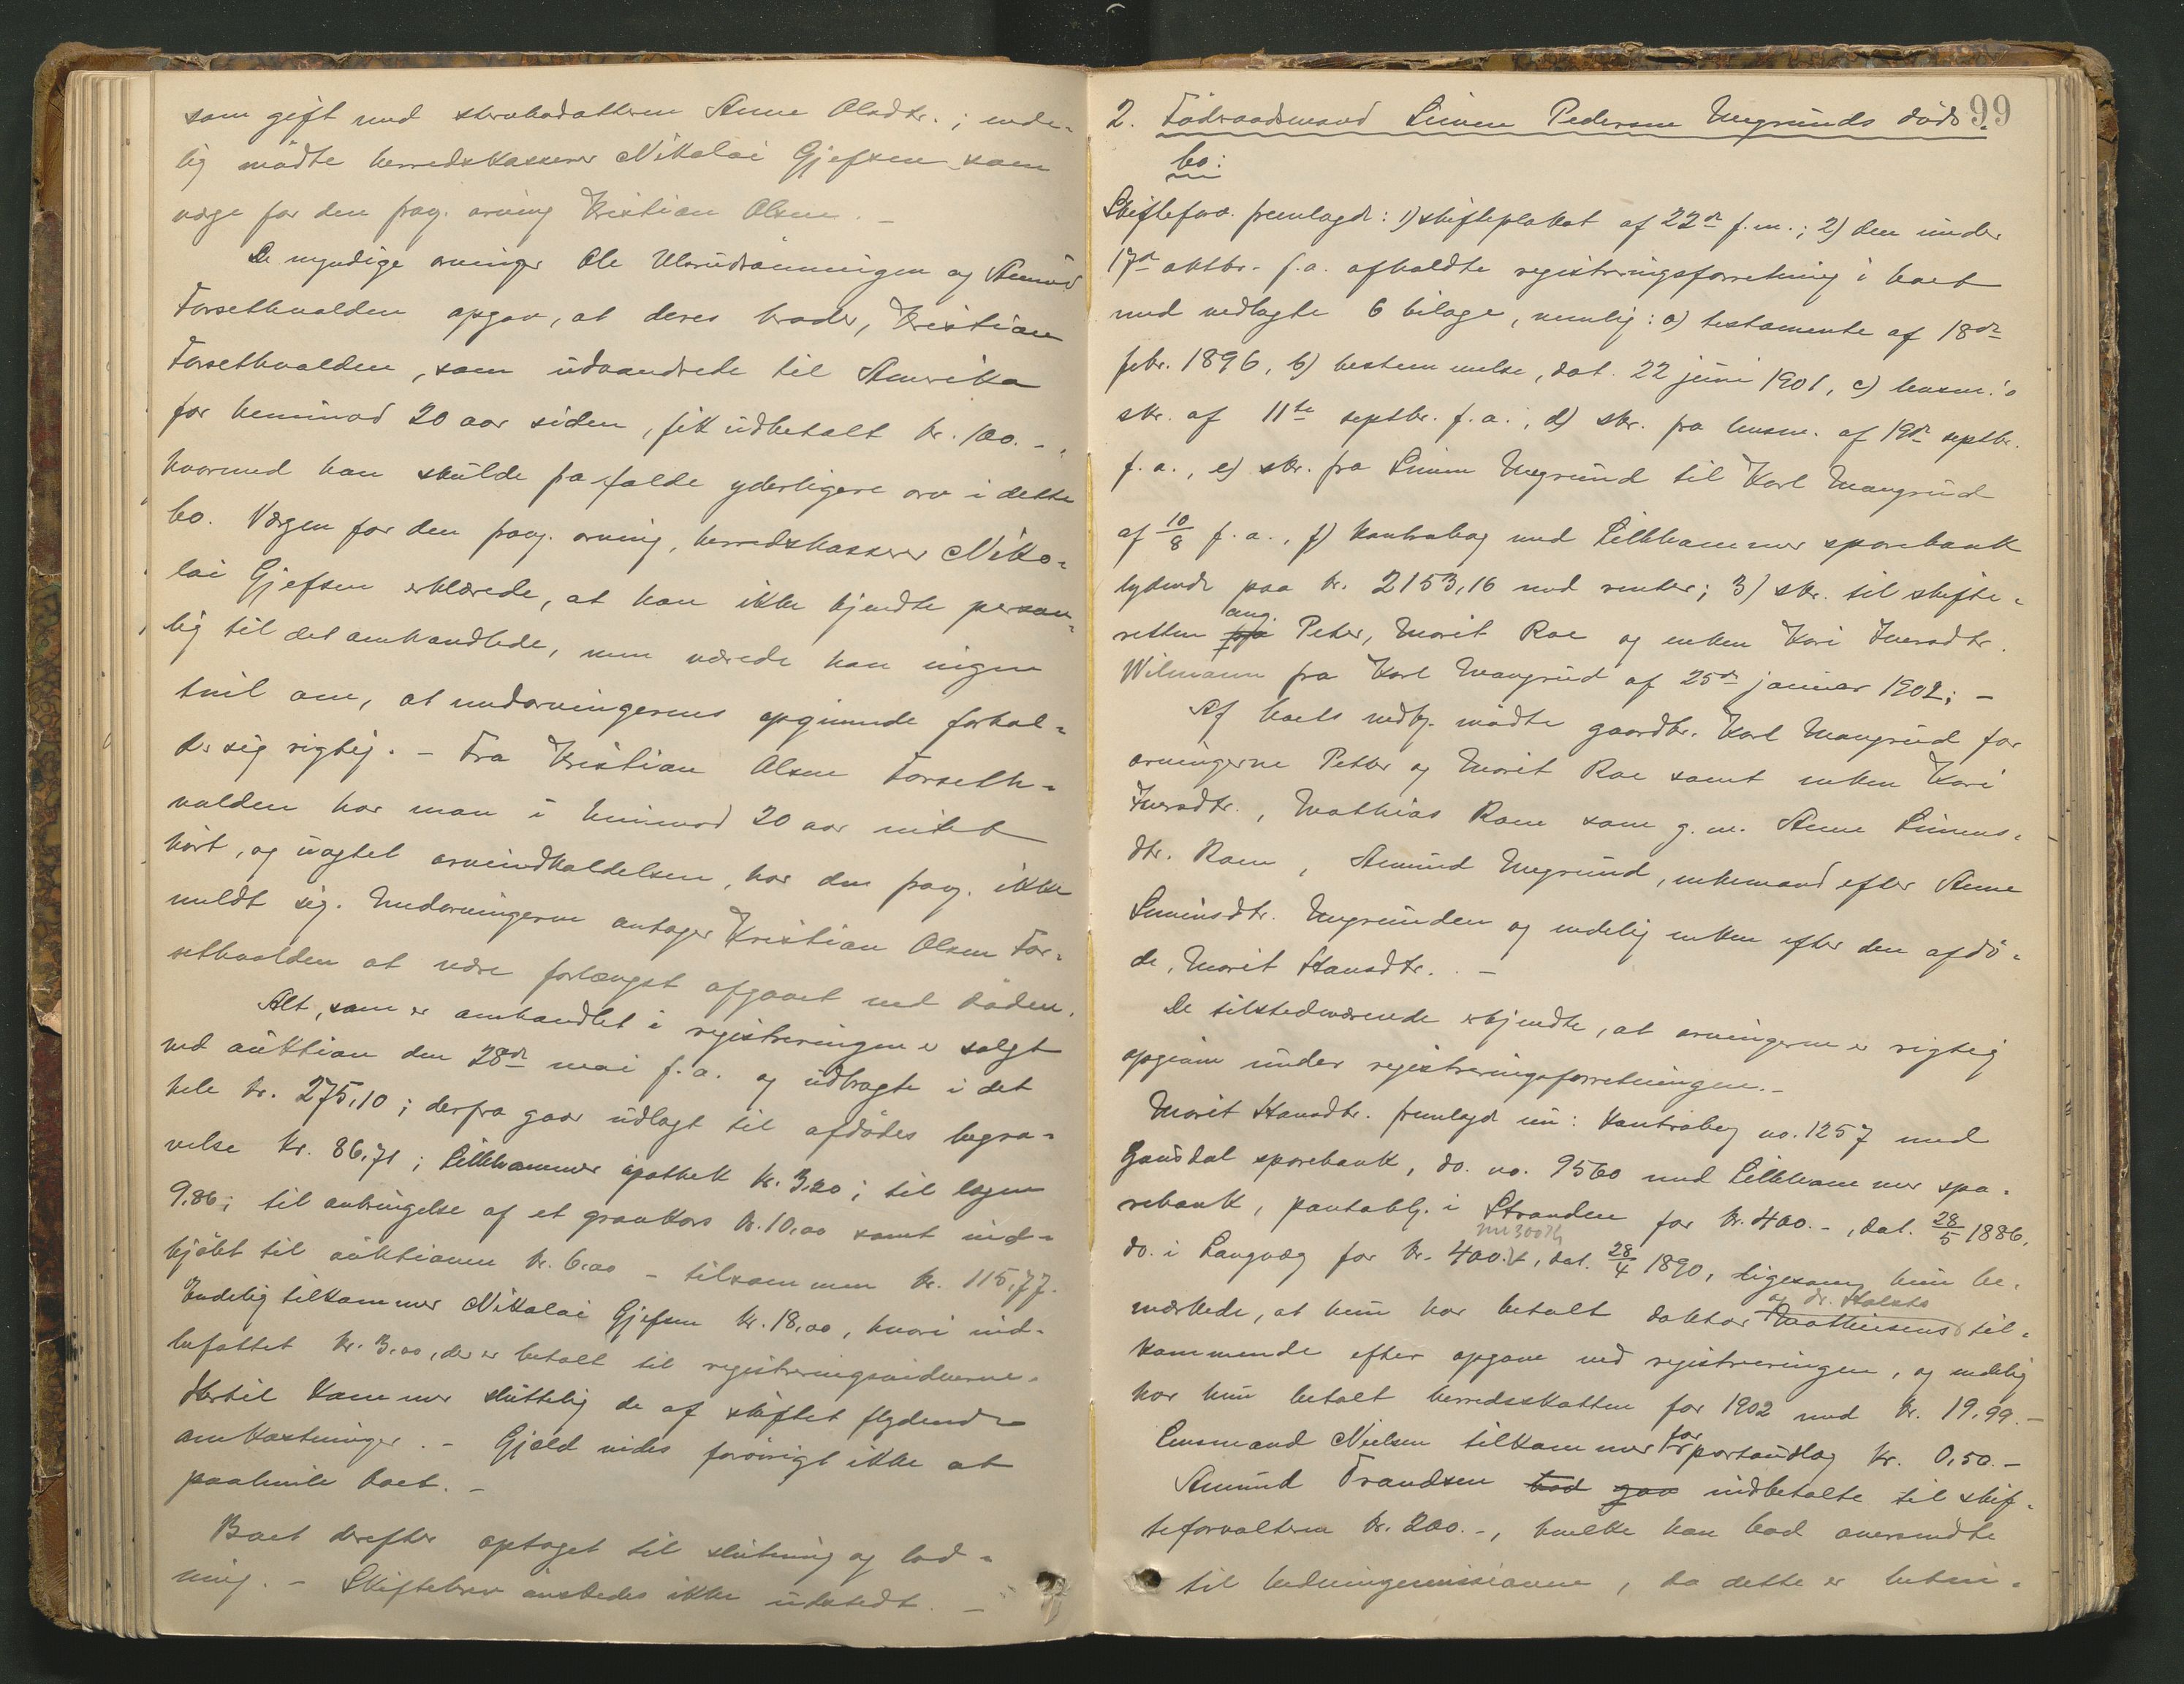 som gift med stervbodatteren Anne Olsdtr.; ende-
lig mödte herredskasserer Nikolai Gjefsen som
værge for den frav. arving Kristian Olsen. -
De myndige arvinger Ole Ulsrudsænningen og Amund
Forsethvolden opgav, at deres broder, Kristian
Forsethvolden, som udvandrede til Amerika
for henimod 20 aar siden, fik udbetalt kr. 100.-,
hvormed han skulde frafalde yderligere arv i dette
bo. Værgen for den frav. arving, herredskasserer Niko-
lai Gjefsen erklærede, at han ikke kjendte person-
lig til det omhandlede, men nærede han ingen
tvil om, at medarvingernes opgivende forhol-
der sig rigtig. - Fra Kristian Olsen Forseth-
volden har man i henimod 20 aar intet
hört, og uagtet arveindkaldelsen, har den frav. ikke
meldt sig. Medarvingerne antager Kristian Olsen For-
sethvolden at være forlængst afgaaet ved döden.
Alt, som er omhandlet i registreringen er solgt
ved auktion den 28de mai f.a. og udbragte i det
hele kr. 275,10; derfra gaar udlagt til afdödes begra-
velse kr. 86,71; Lillehammer apothek kr. 3,20; til lægen
9,86; til anbringelse af et gravkors kr. 10,00 samt ind-
kjöbt til auktionen kr. 6,00 - tilsammen kr. 115,77.
Endelig tilkommer Nikolai Gjefsen kr. 18,00, hvori ind-
befattet kr. 3,00, der er betalt til registreringsvidnerne.
Hertil kommer sluttelig de af skiftet flydende
omkostninger. - Gjæld vides forövrigt ikke at
paahvile boet. -
Boet derefter optaget til slutning og lod-
ning. - Skiftebrev önskedes ikke udstedt. -
99
2. Föderaadsmand Simen Pedersen Megrunds döds-
bo:
Skifteforv. fremlagde: 1) skifteplakat af 22de f.m.; 2) den under
17de oktbr. f.a. afholdte registreringsforretning i boet
med vedlagte 6 bilage, nemlig: a) testamente af 18de
febr. 1896, b) bestemmelse, dat. 22 juni 1901, c) lensm.'s
skr. af 11te septbr. f.a., d) skr. fra lensm. af 19de septbr.
f.a., e) skr. fra Simen Megrund til Karl Mangrud
af 10/8 f.a., f) kontrabog med Lillehammer sparebank
lydende paa kr. 2153,16 med renter; 3) skr. til skifte-
retten fra ang. Peter, Marit Roe og enken Kari Iversdtr.
Wilmann fra Karl Mangrud af 25de januar 1902; -
Af boets vedk. mödte gaardbr. Karl Mangrud for
arvingerne Petter og Marit Roe samt enken Kari
Iversdtr., Mathias Roen som g.m. Anne Simens-
dtr. Roen, Amund Megrund, enkemand efter Anne
Simensdtr. Megrunden og endelig enken efter den afdö-
de, Marit Hansdtr. . -
De tilstedeværende erkjendte, at arvingerne er rigtig
opgivne under registreringsforretningen. -
Marit Hansdtr. fremlagde nu: Kontrabog no. 1257 med
Gausdal sparebank, do. no. 9560 med Lillehammer spa-
rebank, pantobl. i Stranden for kr. 400.-, dat. 28/5 1886,
nu 300 kr
do. i Langvæg for kr. 400.-, dat. 28/4 1890, ligesom hun be-
og dr. Holsts
mærkede, at hun har betalt doktor Mathiesens til-
kommende efter opgave ved registreringen, og endelig
har hun betalt herredsskatten for 1902 med kr. 19.99. -
Lensmand Nielsen tilkommer for portoudlæg kr. 0,50. -
Amund Frandsen bad gav indbetalte til skif-
teforvalteren kr. 200.-, hvilke han bad oversendte
til hedningemissionen, da dette er betin-